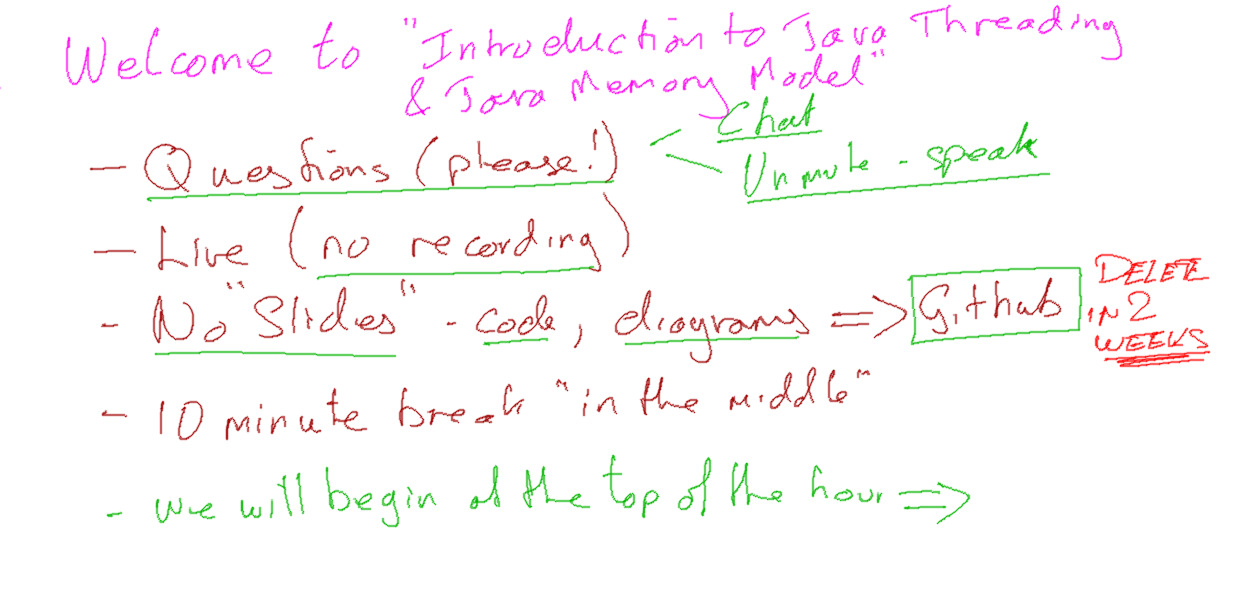 Welcome to "Introduction to Java Threading
& Java Memory Model"
- Questions (please!) < Chat
Unmute - speak
- Live (no recording)
- No "Slides" - code, diagrams => Github
DELETE
IN 2
WEEKS
- 10 minute break "in the middle"
- we will begin at the top of the hour =>